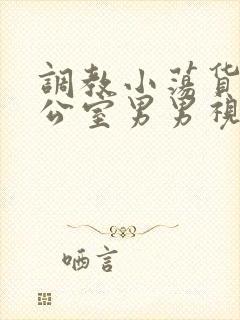 調教小蕩貨
公室男男視
哂言